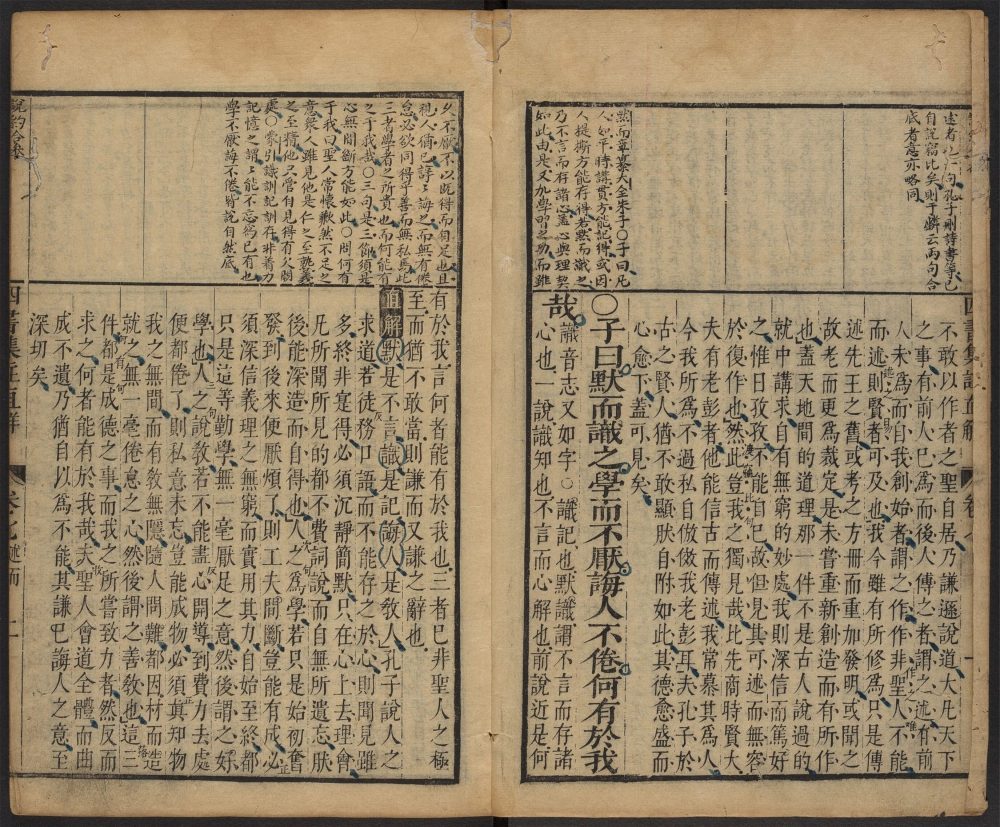 述者也仁句孔子刪詩書等已
自說竊比矣則于轍云兩句合
底者意亦略同
然而章蒙大全朱子○子曰凡
人如平時講貫方能記得或因
人提撕方能存得若默而識之
乃不言而存諸心心與理契
如此由是又加學習之功而雖
四書集註直解 卷七
不敢以作者之聖自居乃謙遜說道大凡天下
之事有前人已為而後人傳之者謂之述有前
人未為而自我創始者謂之作作非聖人不能
而述則賢者可及也我今雖有所修為只是傳
述先王之舊或考之方冊而重加發明或聞之
故老而更為裁定是未嘗重新創造而有所作
也蓋天地間的道理那一件不是古人說過的
就中講求自有無窮的妙處我則深信而篤好
之惟日孜孜不能自已故但見其可述而無容
於復作也然此豈我之獨見哉比先商時賢大
夫有老彭者他已能信古而傳述我常慕其為人
今我所為不過私自倣傚我老彭耳夫孔子於
古之賢人猶不敢顯肰自附如此其德愈盛而
心愈下蓋可見矣
○子曰默而識之學而不厭誨人不倦何有於我
哉識音志又如字○識記也默識謂不言而存諸
心也一說識知也不言而心解也前說近是何
久不厭不以既得而自足也且
視人猶己諄諄誨之而無有倦
怠必欲同得乎善而無私焉此
三者學者之所貴也而何能有
之于我哉○三句是三節須是
心無間斷方能如此○問何有
于我曰聖人常懷歉然不足之
意衆人雖見他是仁之至熟義
之至精他只管自見得有欠闕
處○蒙引識訓記訓在非着力
記憶之謂只能不忘爲己有也
學不厭誨不倦皆說自然底
有於我言何者能有於我也三者已非聖人之極
至而猶不敢當則謙而又謙之辭也
直解默是不言識是記誨人是敎人孔子說人之
求道若徒務口語而不能存之於心則聞見雖
多終非寔得必須沉靜簡默只在心上去理會
凡所聞所見的都不費詞說而自無所遺忘肰
後能深造而自得也人之為學若只是始初奮
發到後來便厭煩了則工夫間斷豈能有成必
須深信義理之無窮而實用其力自始至終都
只是這等勤學無一毫厭足之意然後謂之好
學也人之說敎若不能盡心開導到費力去處
便都倦了則私意未忘豈能成物必須真知物
我之無間而有敎無隱隨人問難都因材而造
就之無一毫倦怠之心然後謂之善敎也這三
件都是成德之事而我之所嘗致力者然反而
求之何者能有於我哉夫聖人會道全體而曲
成不遺乃猶自以爲不能其謙已誨人之意至
深切矣
四書集註直解 卷七 述而 二